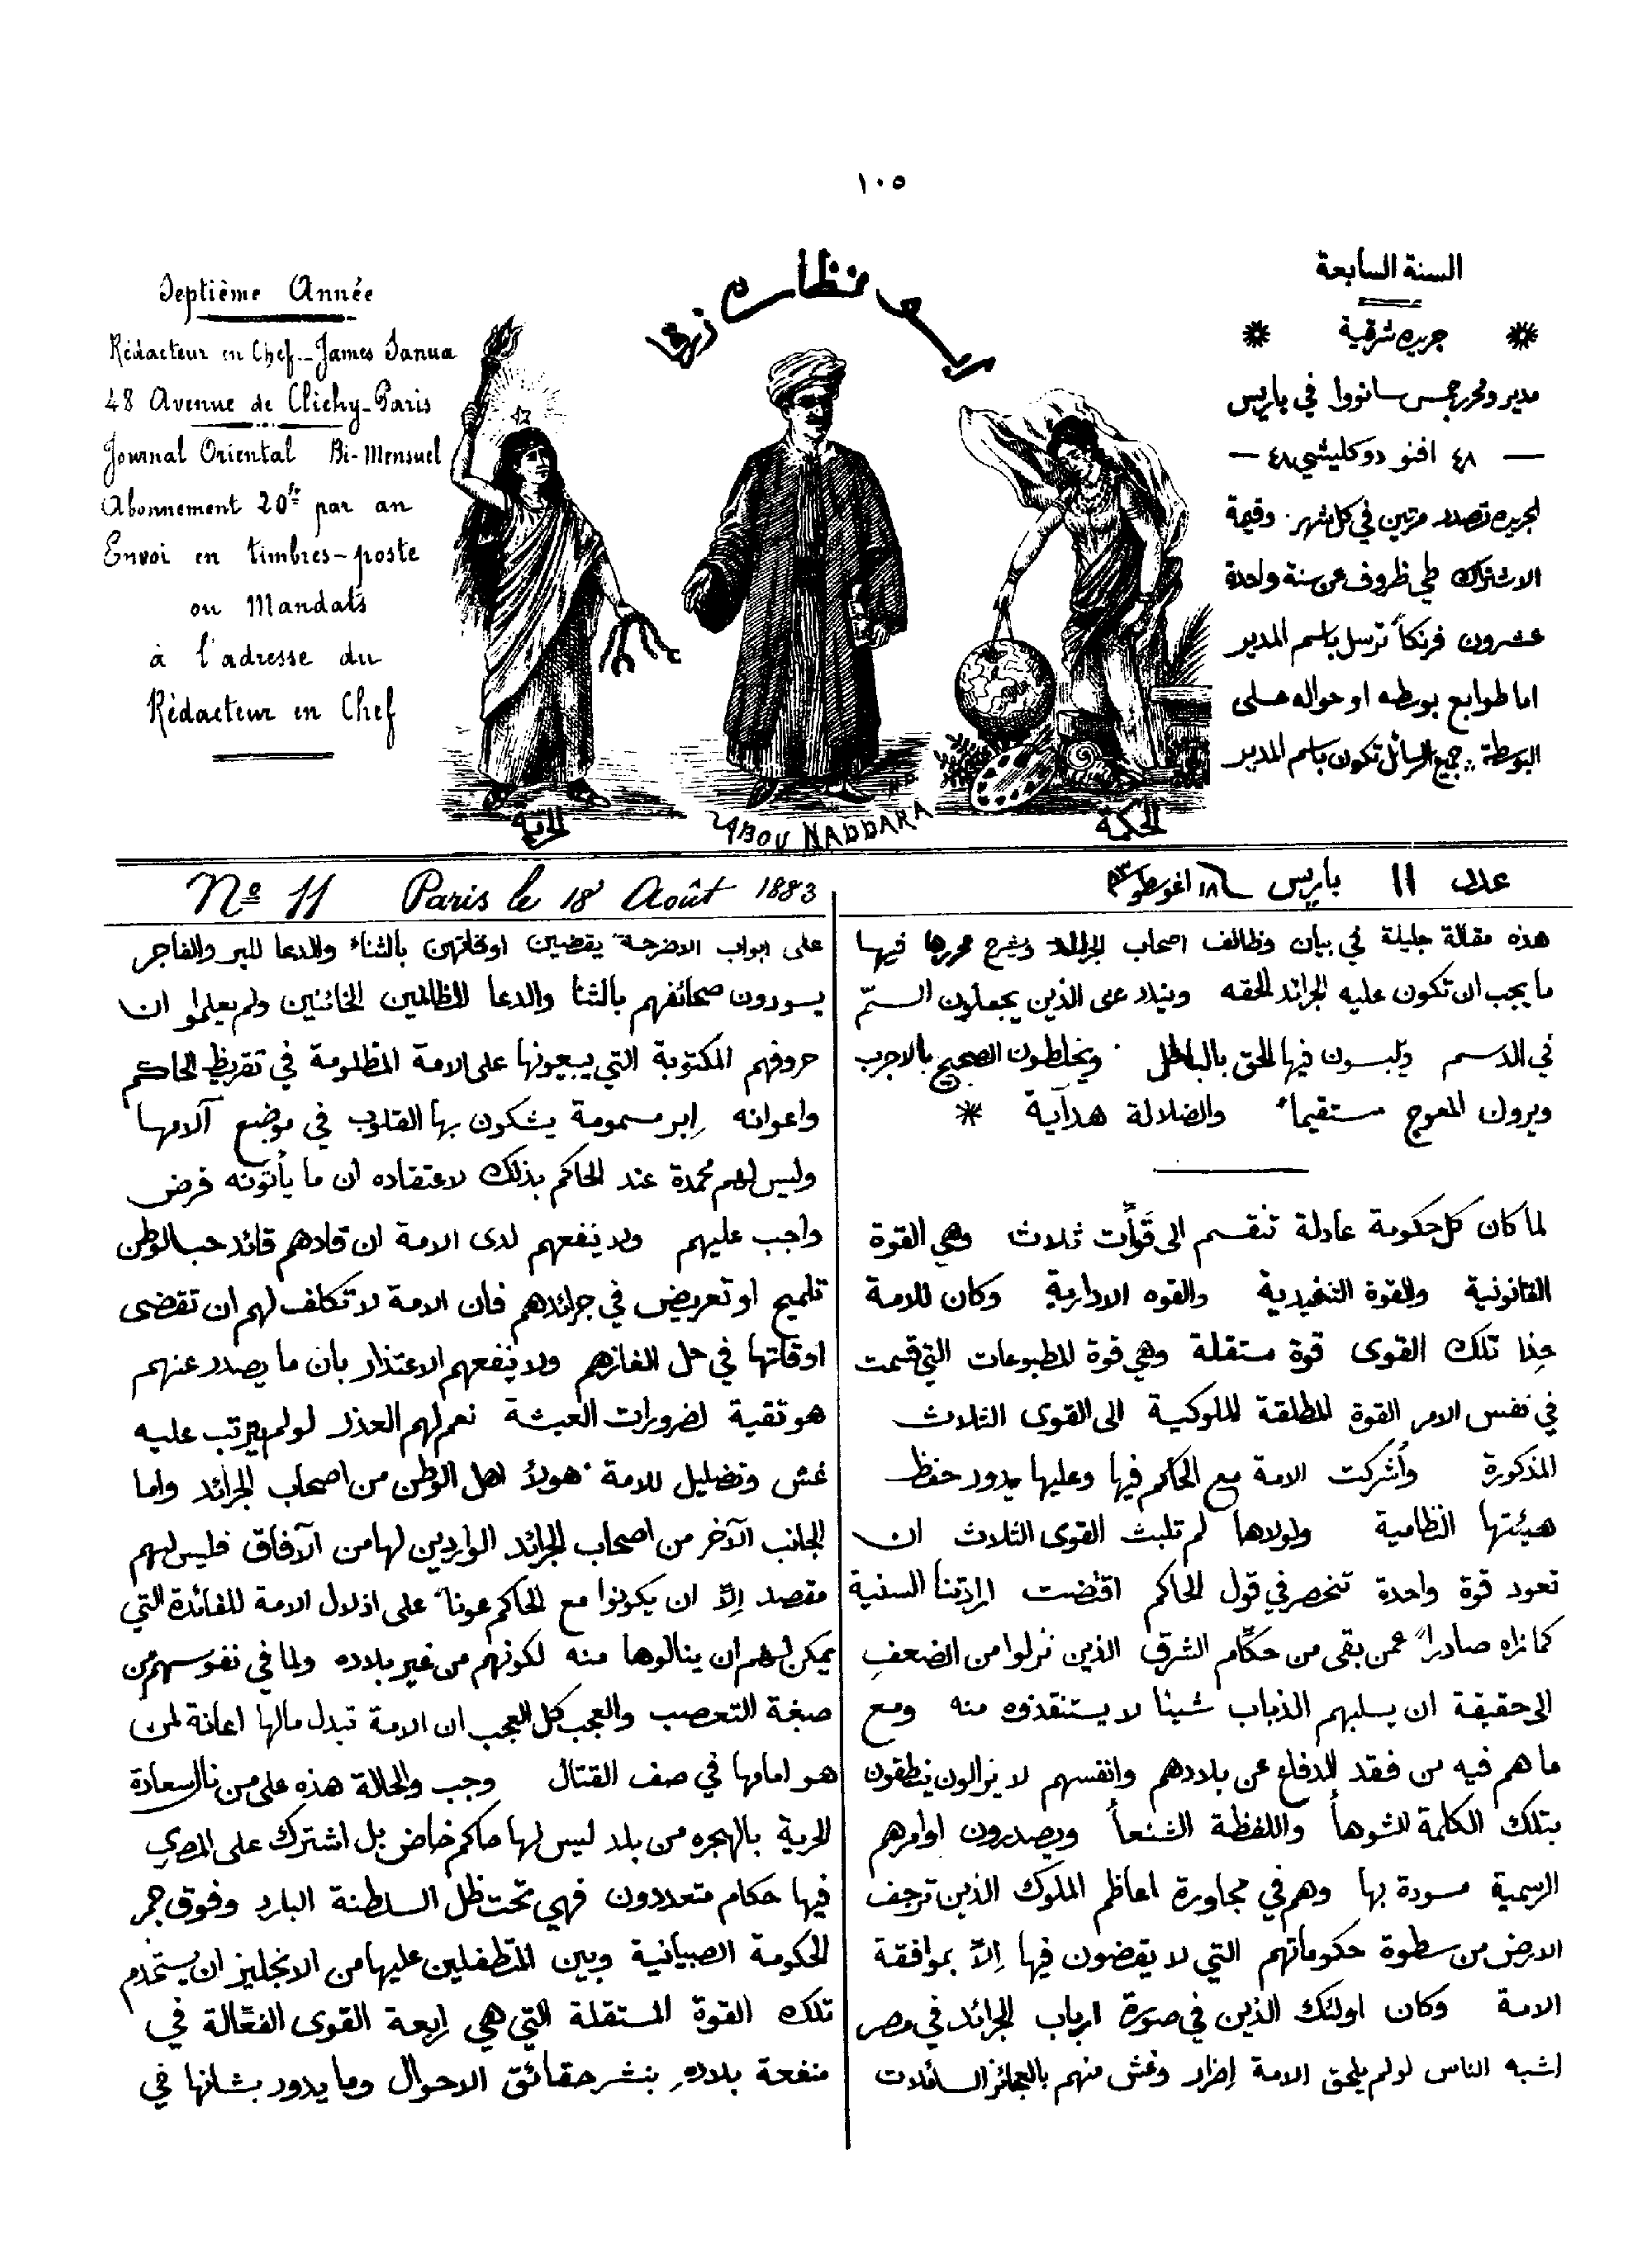 ١٠٥
السنة السابعة
جريده شرقية
مدير ومحرر جمس سانووا في باريس
— ٤٨ افنو دوكليشي ٤٨ —
الجريده تصدر مرتين في كل شهر . وقيمة
الاشتراك طي ظروف عن سنة واحدة
عشرون فرنكاً ترسل باسم المدير
اما طوابع بوسطه او حواله على
البوسطة .. جميع الرسائل تكون باسم المدير
نظاره زرقا
Septième Année
Rédacteur en Chef - James Sanua
48 Avenue de Clichy - Paris
Journal Oriental Bi-Mensuel
Abonnement 20fr par an
Envoi en timbres-poste
ou Mandats
à l'adresse du
Rédacteur en Chef
الحرية
ABOU NADDARA
الحكمة
عدد 11 باريس ١٨ اغوسطو
Nº 11 Paris le 18 Août 1883
هذه مقالة جليلة في بيان وظائف اصحاب الجرائد ويشرح محررها فيها
ما يجب ان تكون عليه الجرائد الحقه ويندد على الذين يجعلون السمّ
في الدسم ويلبسون فيها الحق بالباطل . ويخلطون الصحيح بالاجرب
ويرون المعوج مستقيماً والضلالة هداية *
لما كان كل حكومة عادلة تنقسم الى قوّات ثلاث وهي القوة
القانونية والقوة التنفيذية والقوه الادارية وكان للامة
حِذا تلك القوى قوة مستقلة وهي قوة المطبوعات التي قسمت
في نفس الامر القوة المطلقة الملوكية الى القوى الثلاث
المذكورة وأشركت الامة مع الحاكم فيها وعليها يدور حفظ
هيئتها النظامية ولولاها لم تلبث القوى الثلاث ان
تعود قوة واحدة تنحصر في قول الحاكم اقتضت ارادتنا السنية
كما نراه صادراً عمن بقى من حكّام الشرق الذين نزلوا من الضعف
الى حقيقة ان يسلبهم الذباب شيئا لا يستنقذوه منه ومع
ما هم فيه من فقد الدفاع عن بلادهم وانفسهم لا يزالون ينطقون
بتلك الكلمة الشوهاً واللفظة الشنعاً ويصدرون اوامرهم
الرسمية مسودة بها وهم في مجاورة اعاظم الملوك الذين ترجف
الارض من سطوة حكوماتهم التي لا يقضون فيها اِلاّ بموافقة
الامة وكان اولئك الذين في صورة ارباب الجرائد في مصر
اشبه الناس لولم يلحق الامة اِضرار وغش منهم بالعجائز السائلات
على ابواب الاضرحة يقضين اوقاتهن بالثناء والدعا للبر والفاجر
يسودون صحائفهم بالثنا والدعا للظالمين الخائنين ولم يعلموا ان
حروفهم المكتوبة التي يبيعونها على الامة المظلومة في تقريظ الحاكم
واعوانه اِبر مسمومة يشكون بها القلوب في موضع آلامها
وليس لهم محمدة عند الحاكم بذلك لاعتقاده ان ما يأتونه فرض
واجب عليهم ولا ينفعهم لدى الامة ان قادهم قائد حب الوطن
تلميح او تعريض في جرائدهم فان الامة لا تكلف لهم ان تقضى
اوقاتها في حل الغازهم ولا ينفعهم الاعتذار بان ما يصدر عنهم
هو تقية لضرورات العيشة نعم لهم العذر لو لم يترتب عليه
غش وتضليل للامة . هولاً اهل الوطن من اصحاب الجرائد واما
الجانب الآخر من اصحاب الجرائد الواردين لها من الآفاق فليس لهم
مقصد اِلاّ ان يكونوا مع الحاكم عوناً على اذلال الامة للفائدة التي
يمكن لهم ان ينالوها منه لكونهم من غير بلاده ولما في نفوسهم من
صبغة التعصب والعجب كل العجب ان الامة تبدل مالها اعانة لمن
هو امامها في صف القتال وجب والحالة هذه على من نال سعادة
الحرية بالهجره من بلد ليس لها حاكم خاض بل اشترك على المصري
فيها حكام متعددون فهي تحت ظل السلطنة البارد وفوق جمر
الحكومة الصبيانية وبين المتطفلين عليها من الانجليز ان يستخدم
تلك القوة المستقلة التي هي اربعة القوى الفعّالة في
منفعة بلاده بنشر حقائق الاحوال وما يدور بشانها في